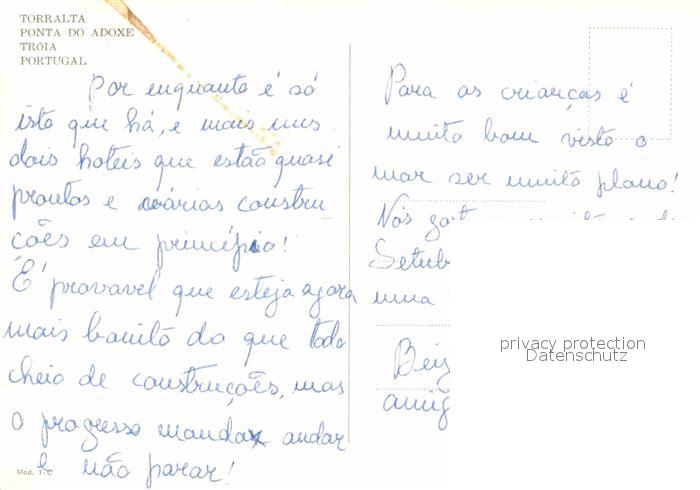 TORRALTA
PONTA DO ADOXE
TRÓIA
PORTUGAL
Por enquanto é só
isto que há, e mais uns
dois hoteis que estão quasi
prontos e várias constru-
ções em princípio!
É provavel que esteja agora
mais bonito do que todo
cheio de construções, mas
o progresso manda andar
e não parar!
Mod. 1-C
Para as crianças é
muito bom visto o
mar ser muito plano!
Nós
Setub
uma
Beij
amig
privacy protection
Datenschutz